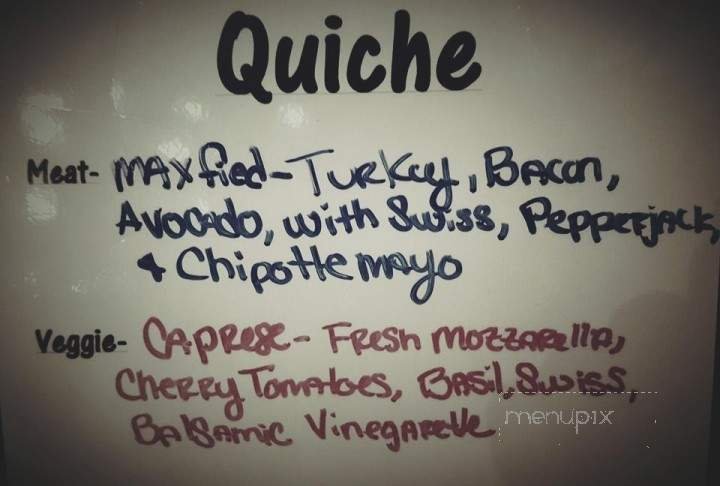 Quiche
Meat- MAXfied - Turkey, Bacon,
Avocado, with Swiss, Pepperjack,
& Chipotle mayo
Veggie- Caprese - Fresh Mozzarella,
Cherry Tomatoes, Basil, Swiss,
Balsamic Vinegarette
menupix